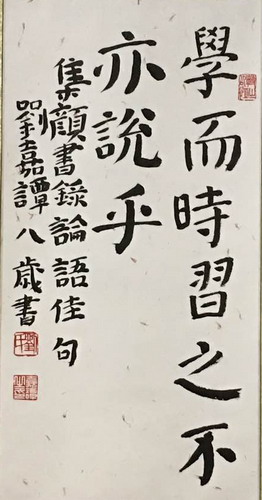 學而時習之不
亦說乎
集顏書錄論語佳句
劉嘉譚八歲書